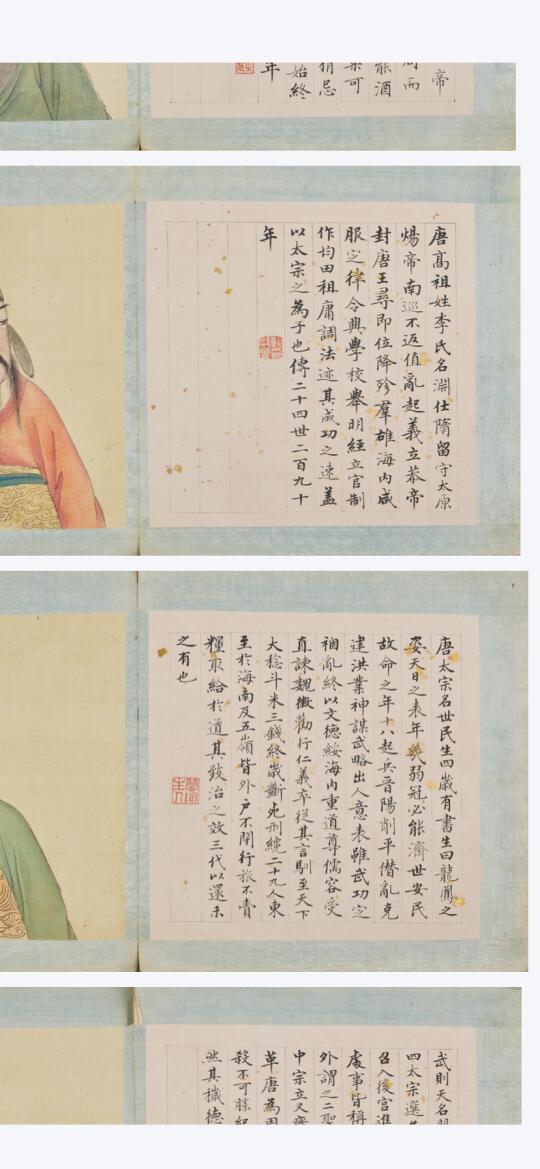 帝
而
能酒
可
猜忌
始終
年
唐高祖姓李氏名淵仕隋留守太原
煬帝南巡不返值亂起義立恭帝
封唐王尋即位降殄羣雄海内咸
服定律令興學校舉明經立官制
作均田租庸調法迹其成功之速蓋
以太宗之為子也傳二十四世二百九十
年
唐太宗名世民生四歲有書生曰龍鳳之
姿天日之表年幾弱冠必能濟世安民
故命之年十八起兵晉陽削平僭亂克
建洪業神謀武略出人意表雖武功定
禍亂終以文德綏海内重道尊儒容受
直諫魏徵勸行仁義卒從其言馴至天下
大稔斗米三錢終歲斷死刑纔二十九人東
至於海南及五嶺皆外戶不閉行旅不賫
糧取給於道其致治之效三代以還未
之有也
武則天名
四太宗選
召入後宮進
處事皆稱
外謂之二聖
中宗立又
革唐為周
殺不可勝紀
然其穢德